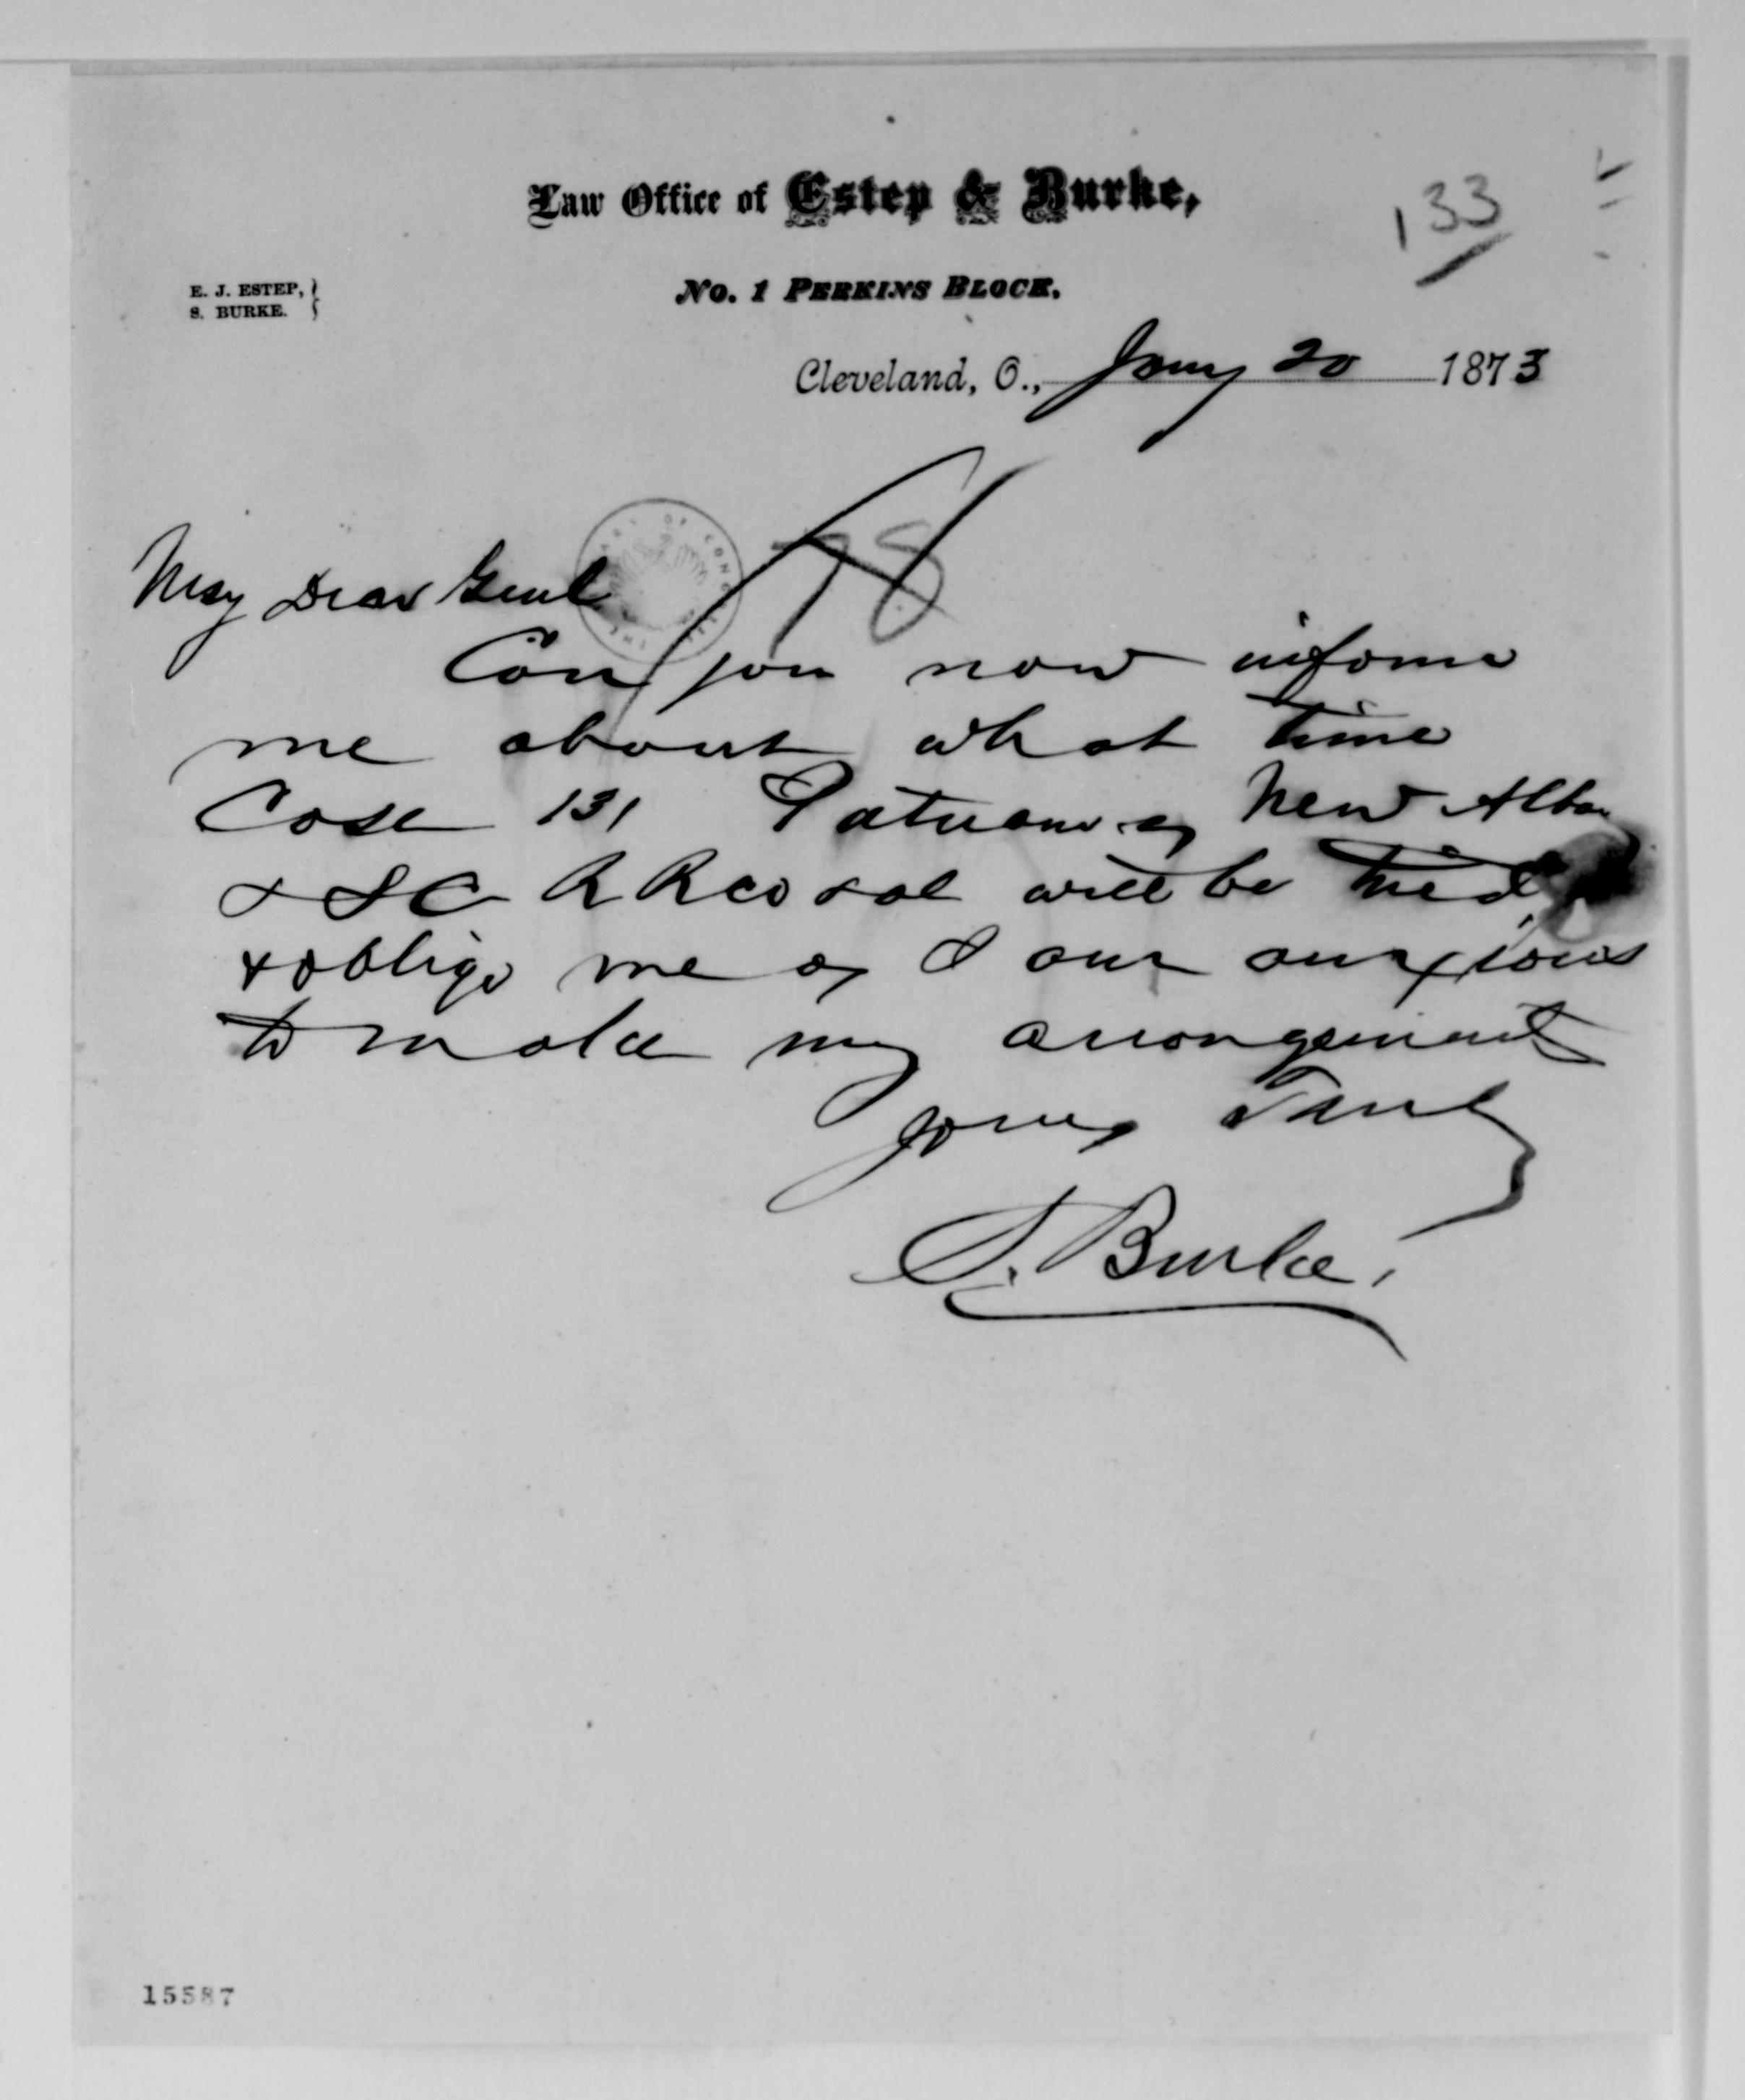 Law Office of Estep & Burke,
133
E. J. ESTEP,
S. BURKE.
No. 1 PERKINS BLOCK.
Cleveland, O., Jany 20 1873
78
My Dear Genl
Can you now inform
me about what time
Case 131 Putnam vs New Alban
& S C R R Co & al will be tried
& oblige me as I am anxious
to make my arrangements
Yours Truly
S. Burke.
15587